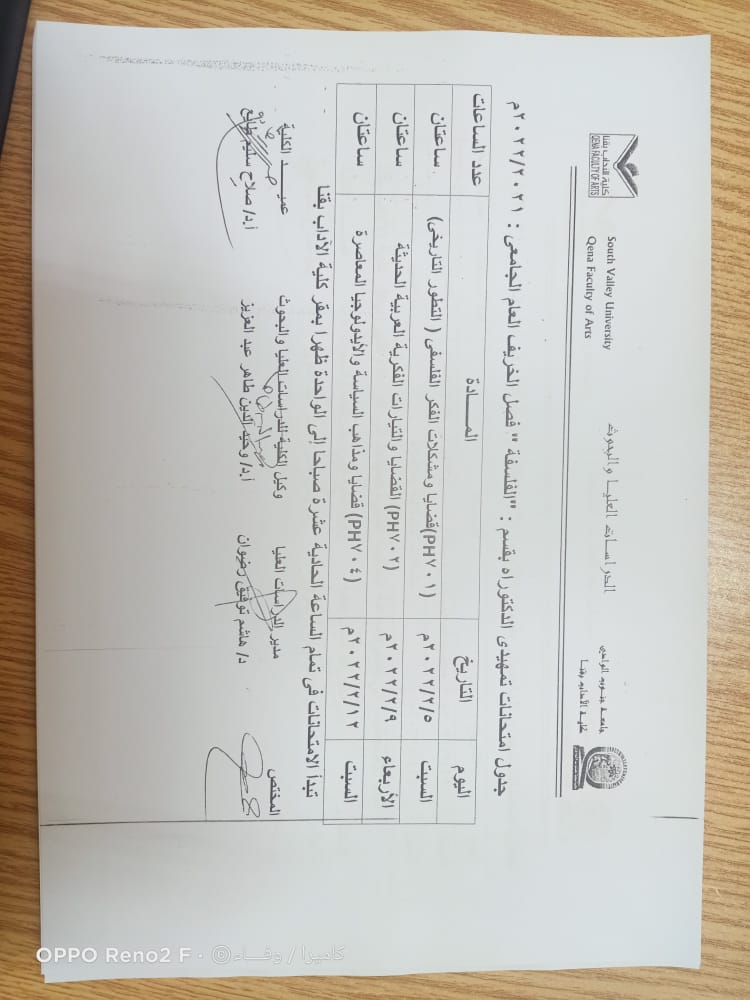 جامعة جنوب الوادي
كلية الآداب بقنا
الدراسات العليا والبحوث
South Valley University
Qena Faculty of Arts
كلية الآداب بقنا
QENA FACULTY OF ARTS
جدول امتحانات تمهيدى الدكتوراه بقسم : "الفلسفة " فصل الخريف العام الجامعى : ٢٠٢٢/٢٠٢١م
اليوم التاريخ المـــادة عدد الساعات
السبت ٢٠٢٢/٢/٥م (PH٧٠١)قضايا ومشكلات الفكر الفلسفى ( التطور التاريخى) ساعتان
الأربعاء ٢٠٢٢/٢/٩م (PH٧٠٢) القضايا والتيارات الفكرية العربية الحديثة ساعتان
السبت ٢٠٢٢/٢/١٢م (PH٧٠٤) قضايا ومذاهب السياسة والأيدولوجيا المعاصرة ساعتان
تبدأ الامتحانات فى تمام الساعة الحادية عشرة صباحا إلى الواحدة ظهرا بمقر كلية الآداب بقنا
المختص مدير الدراسات العليا وكيل الكلية للدراسات العليا والبحوث عميـــد الكلية
د/ هاشم توفيق رضوان أ.د/ وجيه الدين طاهر عبد العزيز أ.د/ صلاح سليم طايع
OPPO Reno2 F · ©كاميرا / وفــاء